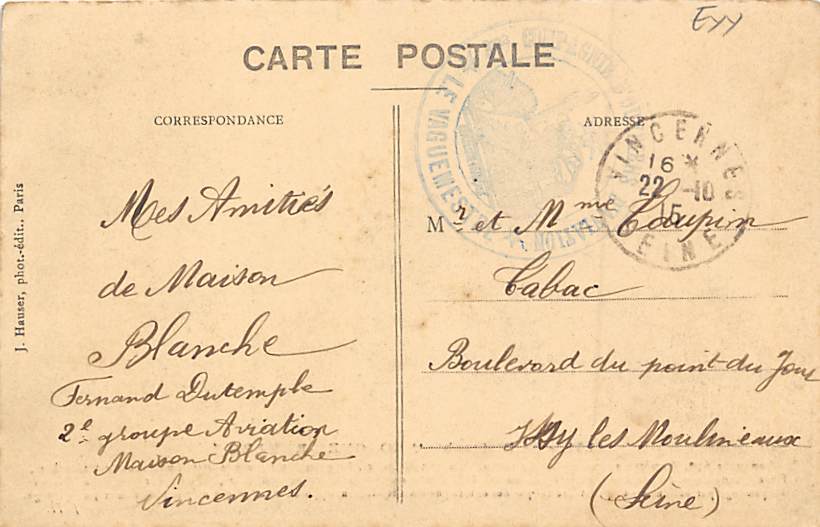 Eyy
CARTE POSTALE
CORRESPONDANCE
ADRESSE
COMPAGNIE
LE VAGUEMESTRE
VINCENNES
16 *
22 -10
5
SEINE
J. Hauser, phot.-édit., Paris
Mes Amitiés
de Maison
Blanche
Fernand Dutemple
2e groupe Aviation
Maison Blanche
Vincennes.
Mr et Mme Taupin
Tabac
Boulevard du point du Jour
Issy les Moulineaux
(Seine)